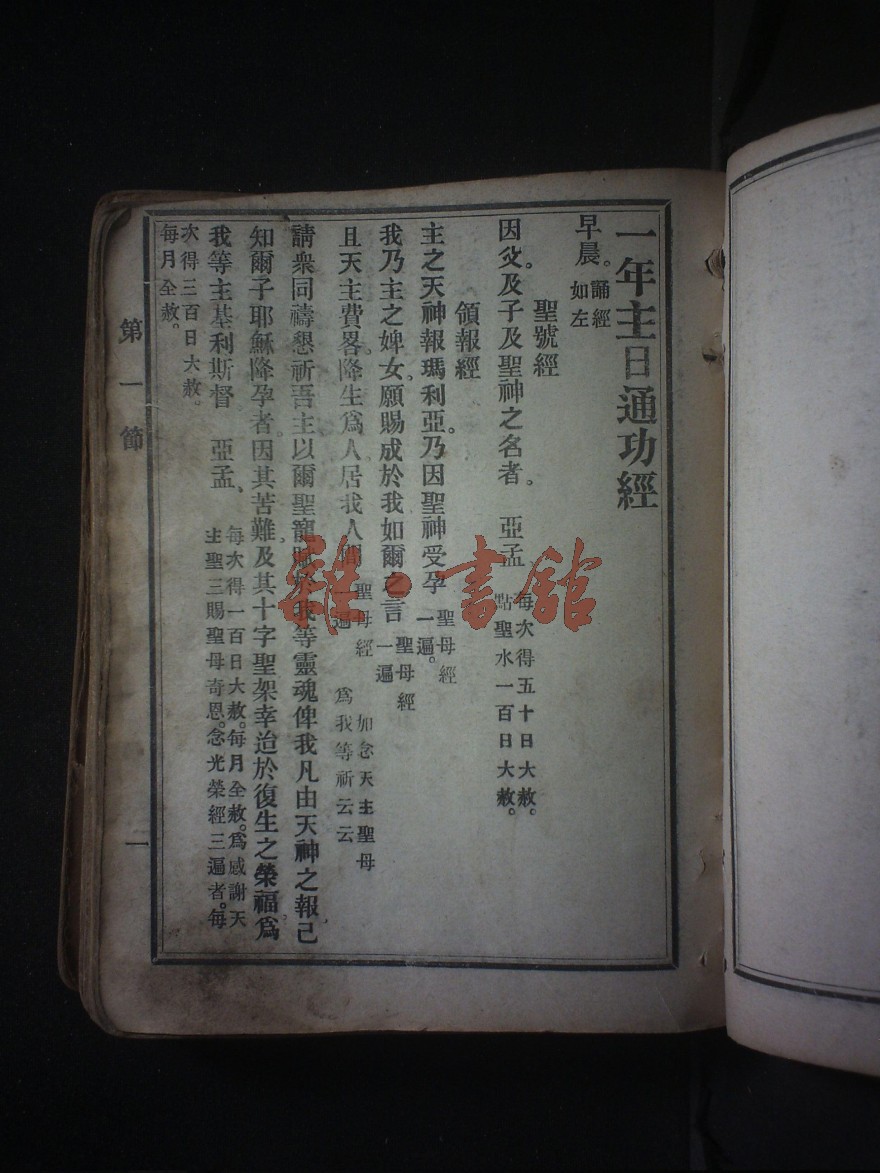 一年主日通功經
早晨。誦經如左
聖號經
因父。及子及聖神之名者。亞孟 每次得五十日大赦。點聖水一百日大赦。
領報經
主之天神報瑪利亞。乃因聖神受孕 聖母經一遍。
我乃主之婢女。願賜成於我如爾之言 聖母經一遍
且天主費畧。降生爲人。居我人間 聖母經一遍 如念天主聖母爲我等祈云云
請衆同禱懇祈吾主。以爾聖寵賦於我等靈魂俾我凡由天神之報己
知爾子耶穌降孕者。因其苦難。及其十字聖架幸迨於復生之榮福。爲
我等主基利斯督 亞孟、每次得一百日大赦。每月全赦。爲感謝天主聖三賜聖母奇恩。念光榮經三遍者。每
次得三百日大赦。每月全赦。
第一節
一
雜·書館